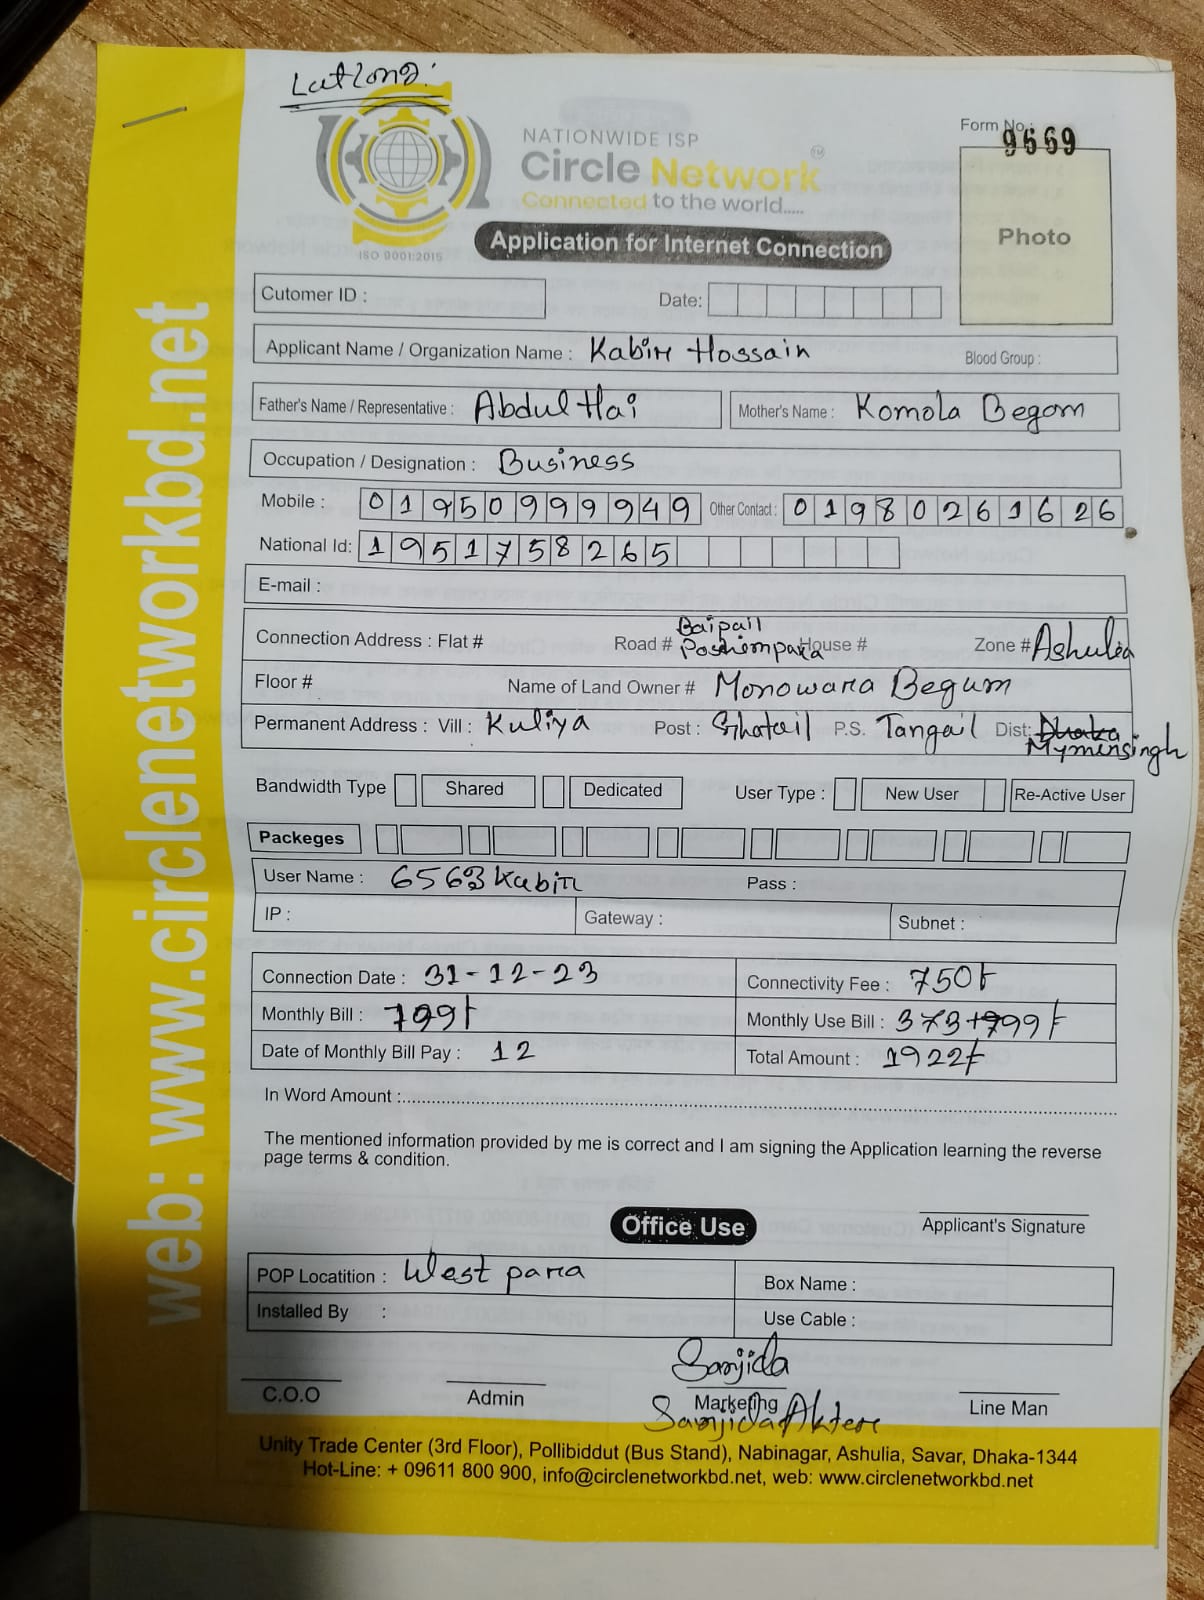 Latlong:
NATIONWIDE ISP
Circle Network TM
Connected to the world.....
ISO 9001:2015
Application for Internet Connection
Form No.: 9669
Photo
Cutomer ID :
Date:
Applicant Name / Organization Name : Kabir Hossain
Blood Group :
Father's Name / Representative : Abdul Hai
Mother's Name : Komola Begom
Occupation / Designation : Business
Mobile : 01950999949 Other Contact : 01980261626
National Id: 1951758265
E-mail :
Connection Address : Flat # Road # Baipail Poshimpara House # Zone # Ashulia
Floor # Name of Land Owner # Monowara Begum
Permanent Address : Vill : Kuliya Post : Ghatail P.S. Tangail Dist: Dhaka Mymensingh
Bandwidth Type Shared Dedicated User Type : New User Re-Active User
Packeges
User Name : 6563kabir Pass :
IP : Gateway : Subnet :
Connection Date : 31-12-23 Connectivity Fee : 750/-
Monthly Bill : 799/- Monthly Use Bill : 373+799/-
Date of Monthly Bill Pay : 12 Total Amount : 1922/-
In Word Amount :
The mentioned information provided by me is correct and I am signing the Application learning the reverse
page terms & condition.
Applicant's Signature
Office Use
POP Locatition : West para Box Name :
Installed By : Use Cable :
Sanjida
C.O.O Admin Marketing Line Man
Sanjida Akter
Unity Trade Center (3rd Floor), Pollibiddut (Bus Stand), Nabinagar, Ashulia, Savar, Dhaka-1344
Hot-Line: + 09611 800 900, info@circlenetworkbd.net, web: www.circlenetworkbd.net
web: www.circlenetworkbd.net